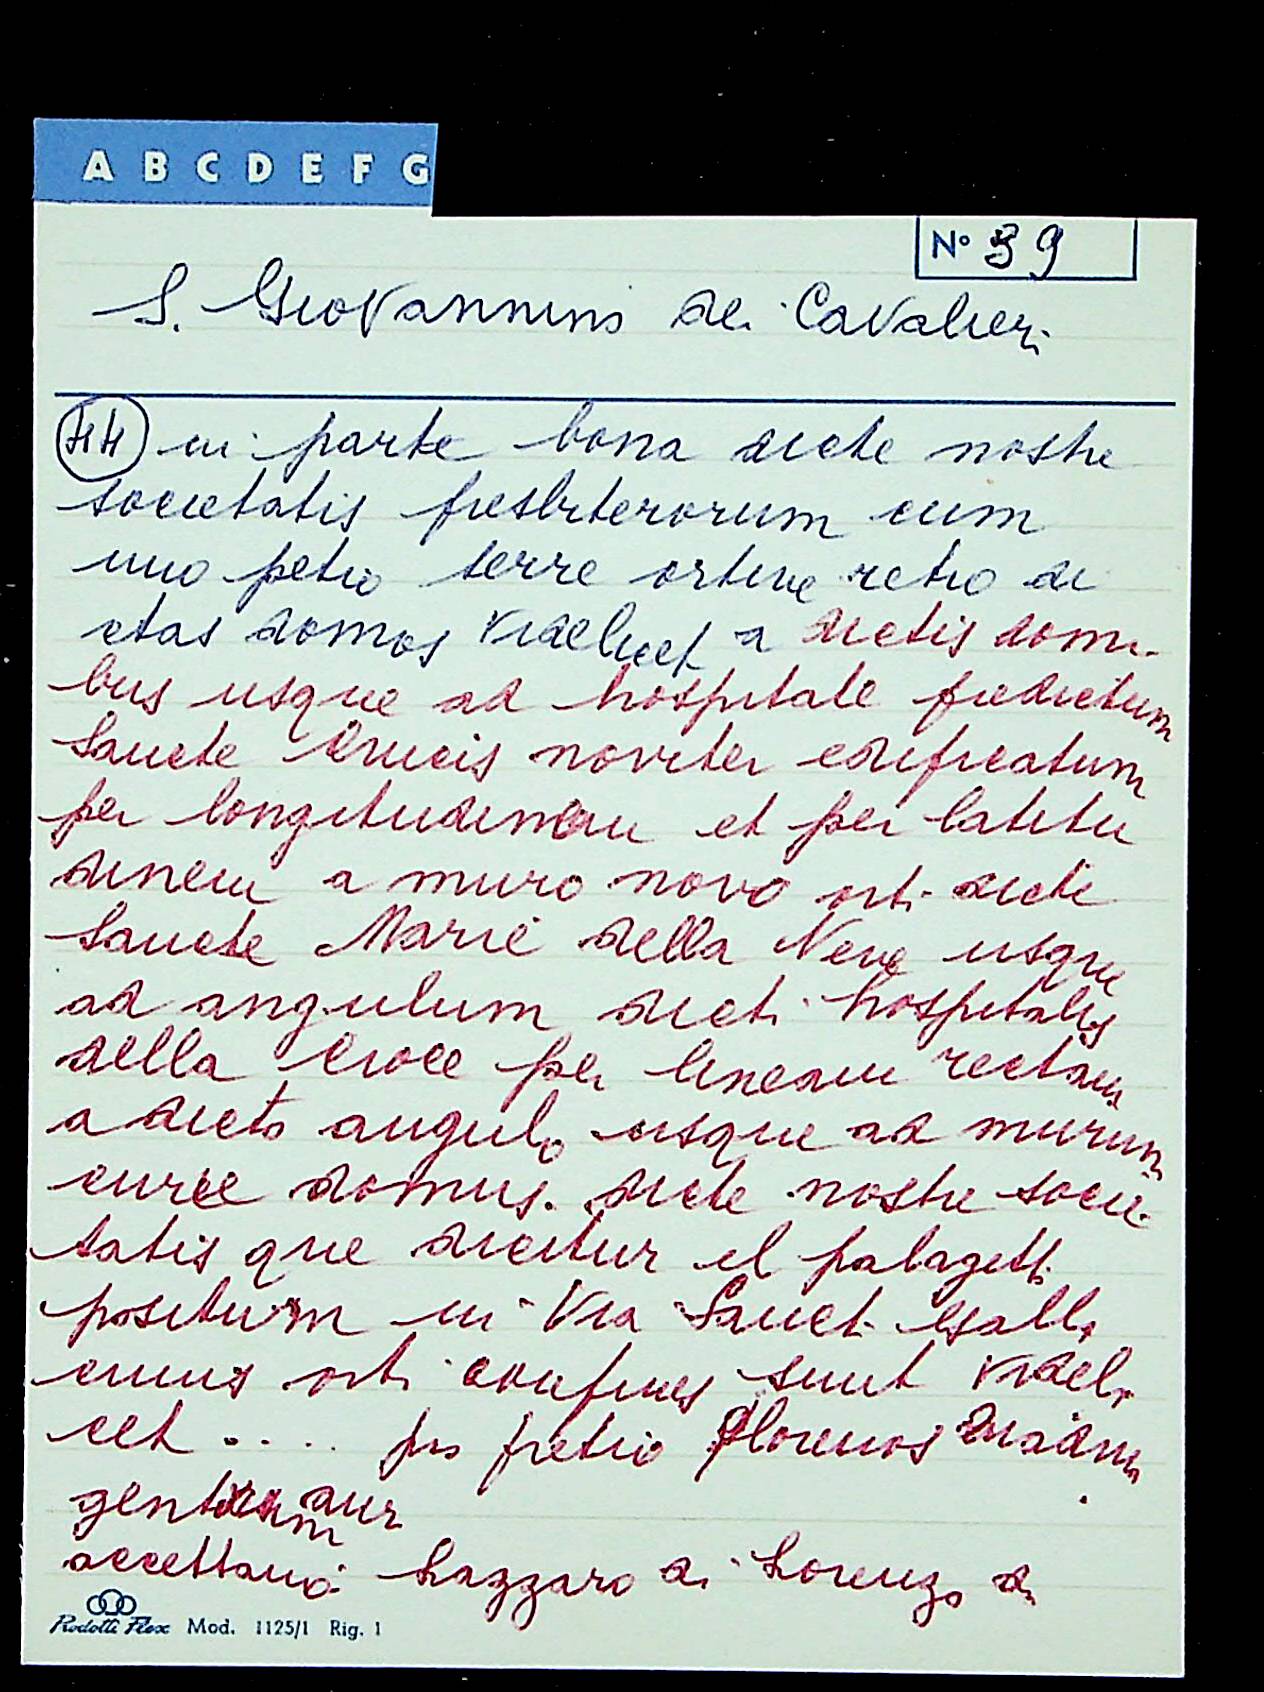 A B C D E F G
N° 39
S. Giovannino dei Cavalieri
44 in parte bona dicte nostre
societatis presbiterorum cum
uno petio terre ortive retio di
ctas domos videlicet a dictis domi-
bus usque ad hospitale predictum
Sancte Crucis noviter edificatum
per longitudinem et per latitu
dinem a muro novo orti dicte
Sancte Marie della Neve usque
ad angulum dicti hospitalis
della Croce per lineam rectam
a dicto angulo usque ad murum
curie domus. dicte nostre socie-
tatis que dicitur il palagetti
positum in Via Sancti Galli
cuius orti confines sunt videli
cet .... pro pretio florenos
aur
accettano Lazzaro di Lorenzo di
Rodotti Flex Mod. 1125/1 Rig. 1